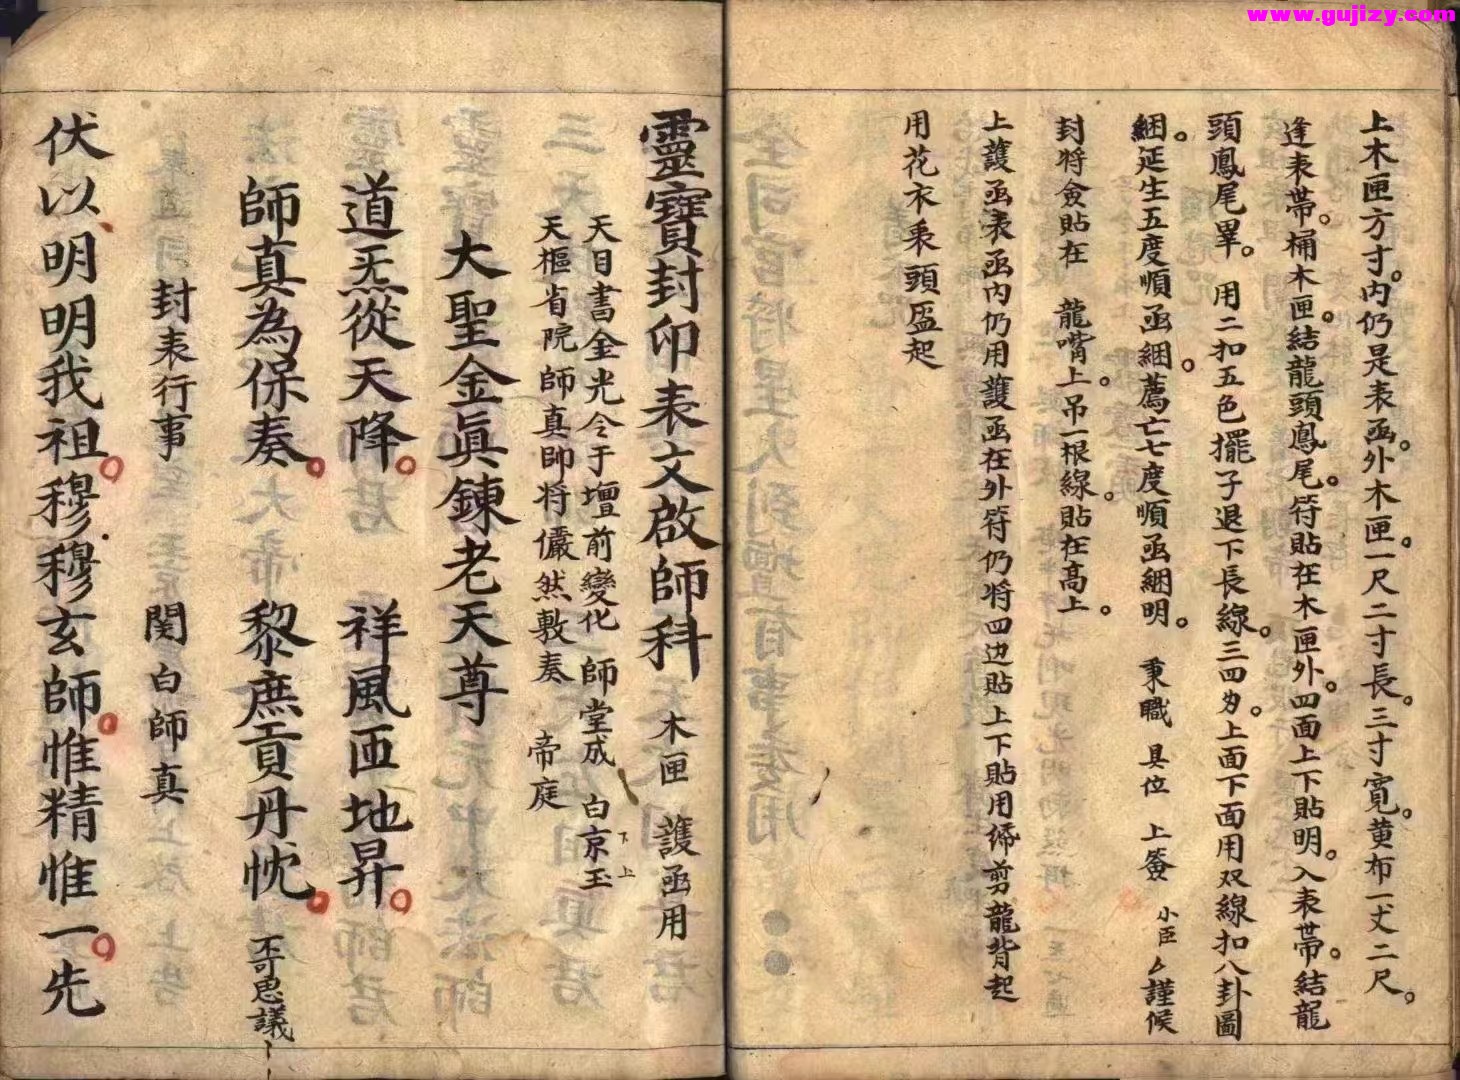 www.gujizy.com
上木匣方寸。内仍是表函。外木匣一尺二寸長。三寸寬。黄布一丈二尺。
逢表帶。桶木匣。結龍頭鳳尾。符貼在木匣外。四面上下貼明。入表帶。結龍
頭鳳尾畢。用二扣五色擺子退下長線。三四为。上面下面用双線扣八卦圖
綑。延生五度順函綑。薦亡七度順函綑明。秉職 具位 上簽 小臣厶謹候
封將僉貼在 龍嘴上。吊一根線。貼在高上。
上護函表函内仍用護函在外符仍將四边貼上下貼用締剪龍背起
用花衣表頭函起
靈寶封印表文啟師科 木匣 護函用
天目書金光令于壇前變化 師堂成 白京玉下上
天樞省院師真師將儼然敷奏 帝庭
大聖金真鍊老天尊
道炁從天降。祥風匝地昇。
師真為保奏。黎庶貢丹忱。不可思議
封表行事 関白師真
伏以、明明我祖。穆穆玄師。惟精惟一。先